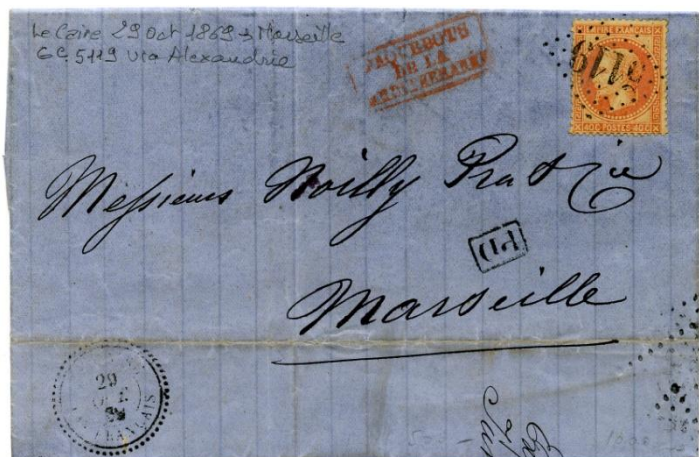 Le Caire 29 Oct 1869 → Marseille
GC 5119 via Alexandrie
PAQUEBOTS
DE LA
MÉDITERRANÉE
EMPIRE FRANÇAIS
5119
40C POSTES 40C
Messieurs Noilly Prat & Cie
PD
Marseille
29
OCT
69
FRANÇAIS